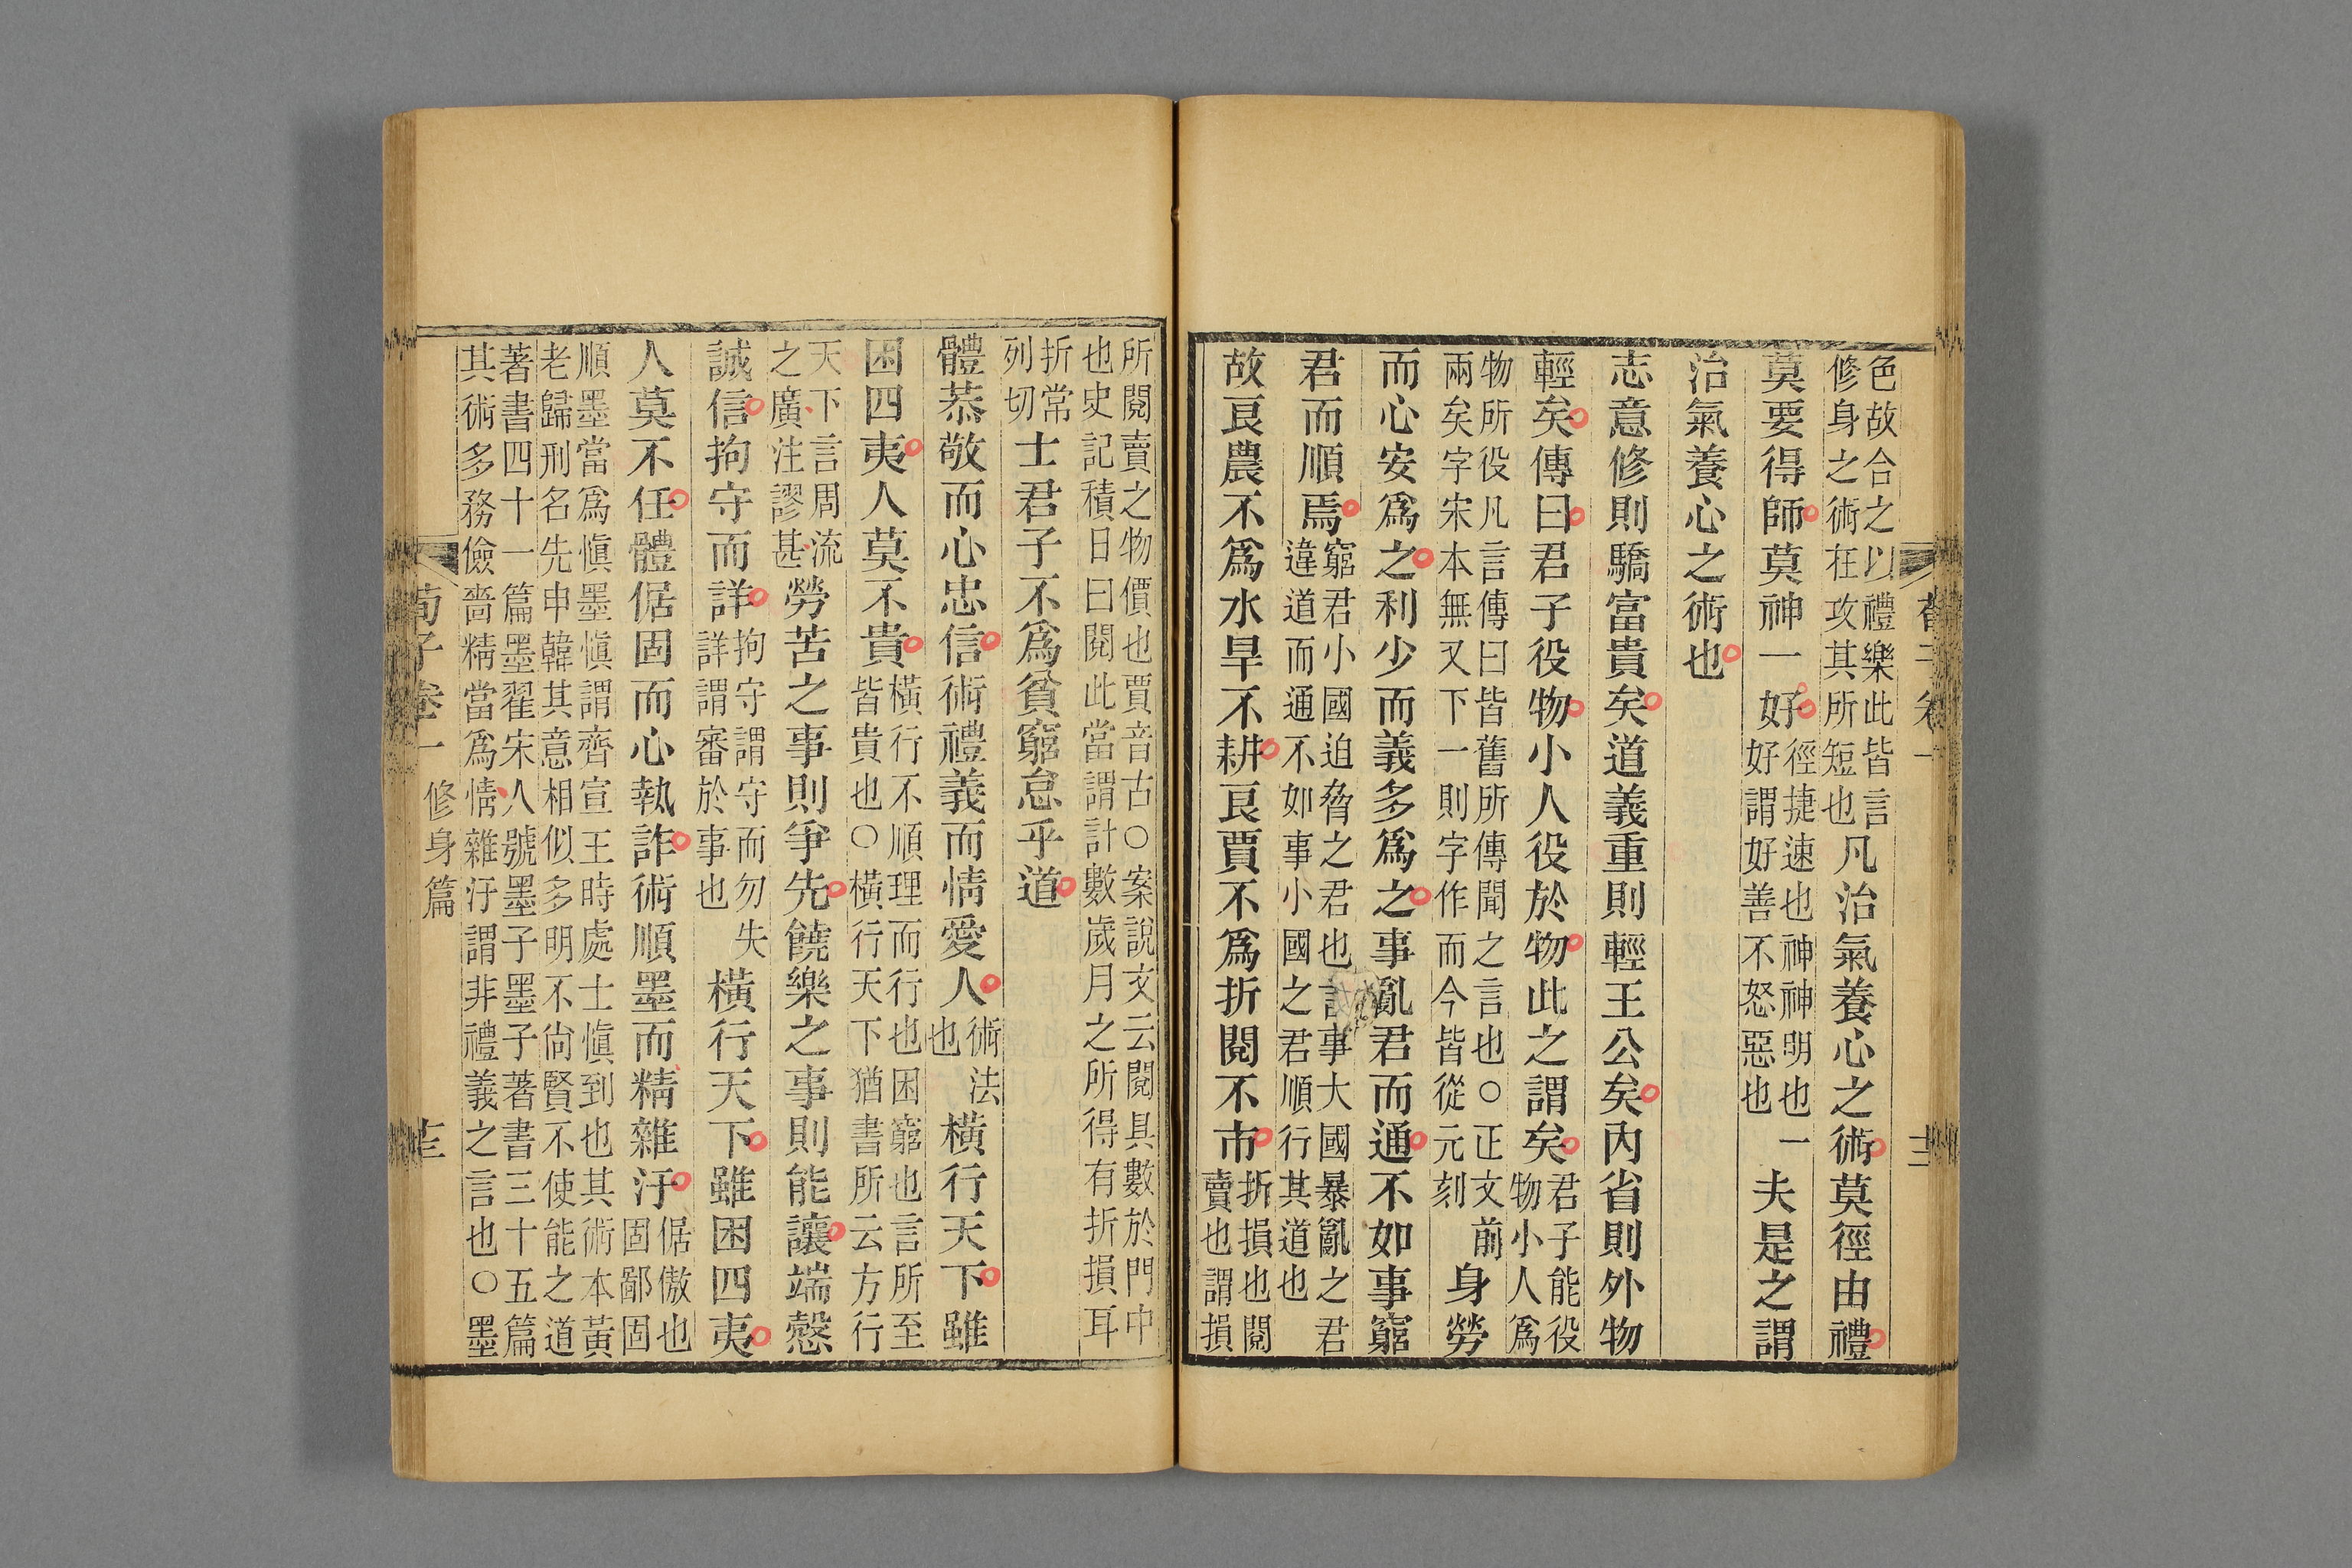 色故合之以禮樂此皆言
修身之術在攻其所短也
凡治氣養心之術莫徑由禮
莫要得師莫神一好
徑捷速也神神明也一
好謂好善不怒惡也
夫是之謂
治氣養心之術也
志意修則驕富貴矣道義重則輕王公矣內省則外物
輕矣傳曰君子役物小人役於物此之謂矣
君子能役
物小人爲
物所役凡言傳曰皆舊所傳聞之言也○正文前
兩矣字宋本無又下一則字作而今皆從元刻
身勞
而心安爲之利少而義多爲之事亂君而通不如事窮
君而順焉
窮君小國迫脅之君也言事大國暴亂之君
違道而通不如事小國之君順行其道也
故良農不爲水旱不耕良賈不爲折閱不市
折損也閱
賣也謂損
所閱賣之物價也賈音古○案說文云閱具數於門中
也史記積日曰閱此當謂計數歲月之所得有折損耳
折常
列切
士君子不爲貧窮怠乎道
體恭敬而心忠信術禮義而情愛人
術法
也
橫行天下雖
困四夷人莫不貴
橫行不順理而行也困窮也言所至
皆貴也○橫行天下猶書所云方行
天下言周流
之廣注謬甚
勞苦之事則爭先饒樂之事則能讓端愨
誠信拘守而詳
拘守謂守而勿失
詳謂審於事也
橫行天下雖困四夷
人莫不任體倨固而心執詐術順墨而精雜汙
倨傲也
固鄙固
順墨當爲愼墨愼謂齊宣王時處士愼到也其術本黃
老歸刑名先申韓其意相似多明不尙賢不使能之道
著書四十一篇墨翟宋人號墨子墨子著書三十五篇
其術多務儉嗇精當爲情雜汙謂非禮義之言也○墨
荀子卷一
修身篇